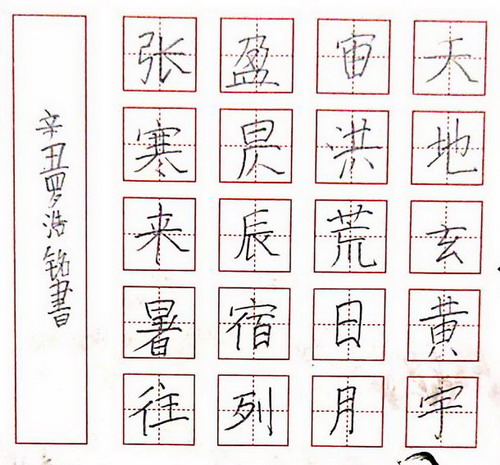 天地玄黄宇
宙洪荒日月
盈昃辰宿列
张寒来暑往
辛丑罗浩铭書